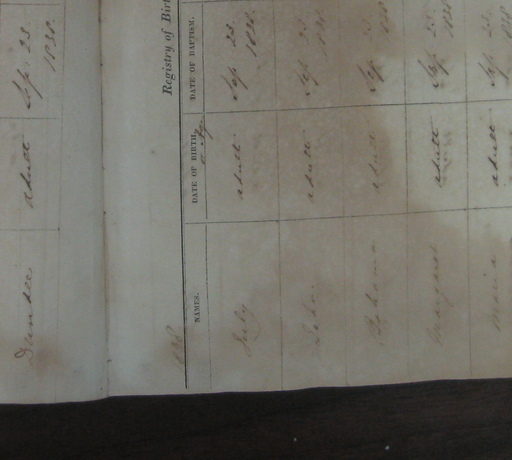 Dundee adult Sep. 23.
1838.
1838
Registry of Birt
NAMES. DATE OF BIRTH, DATE OF BAPTISM.
or Age.
July adult Sep. 23.
1838.
John. adult Sep 23
1838.
Bahama adult Sep. 23.
1838
Margaret adult Sep. 23.
1838
Maria adult Sep. 23
1838